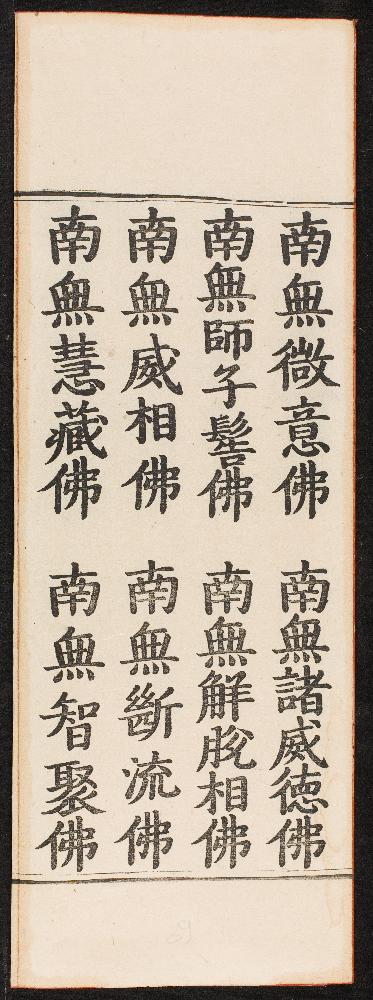 南無微意佛 南無諸威徳佛
南無師子髻佛 南無解脫相佛
南無威相佛 南無斷流佛
南無慧藏佛 南無智聚佛